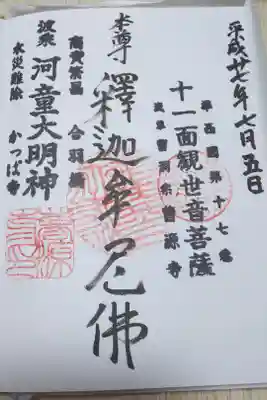 平成廿七年七月五日
西國第十七番
十一面観世音菩薩
曹洞宗 曹源寺
本尊 釋迦牟尼佛
商賣繁昌 合羽橋
波乗 河童大明神
水災難除 かっぱ寺